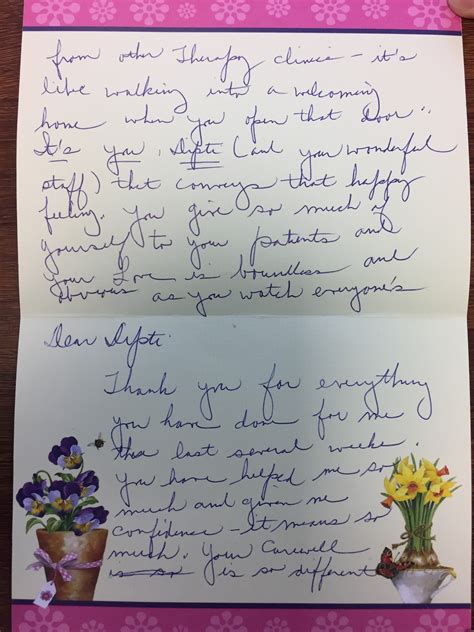 from other Therapy clinics – it's
like walking into a welcoming
home when you open that door".
It's you, Dipti (and you wonderful
staff) that conveys that happy
feeling. You give so much of
yourself to your patients and
your Love is boundless and
obvious as you watch everyone's
Dear Dipti:
Thank you for everything
you have done for me
this last several weeks.
You have helped me so
much and given me
confidence – It means so
much. Your Carewell
is so is so different